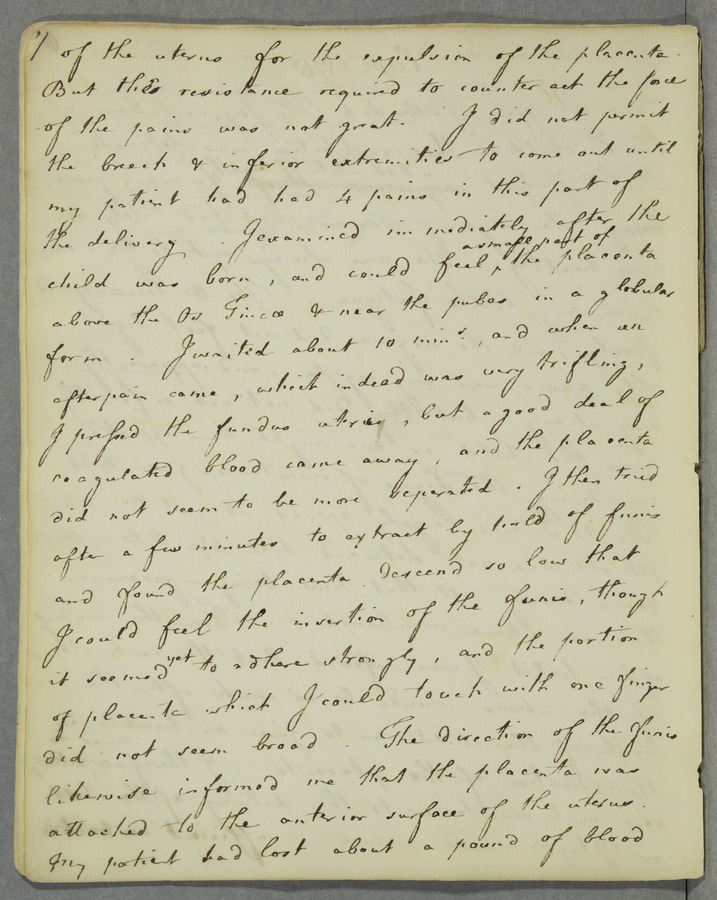 7 of the uterus for the expulsion of the placenta.
But this resistance required to counteract the force
of the pains was not great. I did not permit
the breech & inferior extremities to come out until
my patient had had 4 pains in this part of
the delivery. I examined immediately after the
a small part of
child was born, and could feel ^ the placenta
above the Os Tincæ & near the pubes in a globular
form. I waited about 10 mins., and when an
afterpain came, which indeed was very trifling,
I pressed the fundus uteri, but a good deal of
coagulated blood came away, and the placenta
did not seem to be more seperated. I then tried
after a few minutes to extract by hold of funis
and found the placenta descend so low that
I could feel the insertion of the funis, though
yet
it seemed to adhere strongly, and the portion
of placenta which I could touch with one finger
did not seem broad. The direction of the funis
likewise informed me that the placenta was
attached to the anterior surface of the uterus.
My patient had lost about a pound of blood